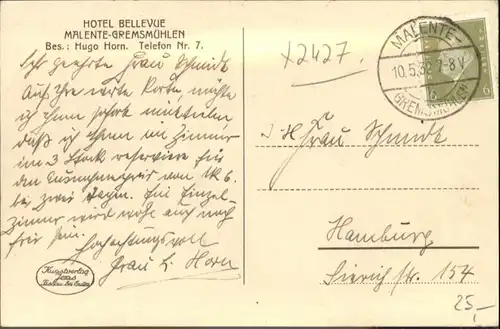 HOTEL BELLEVUE
MALENTE-GREMSMÜHLEN
Bes.: Hugo Horn. Telefon Nr. 7.
Sehr geehrte Frau Schmidt
Auf Ihre werte Karte möchte
ich Ihnen sofort mitteilen
daß ich Ihnen ein Zimmer
im 3 Stock reserviere für
den Ausnahmepreis von Mk 6.
bei zwei Tagen. Ein Einzel-
zimmer wird wohl auch noch
frei sein.
Hochachtungsvoll
Frau H. Horn
Kunstverlag
x2427
MALENTE-
10.5.32 7-8 V
GREMSMÜHLEN
6
Frau Schmidt
Hamburg
Sierich str. 154
25,-